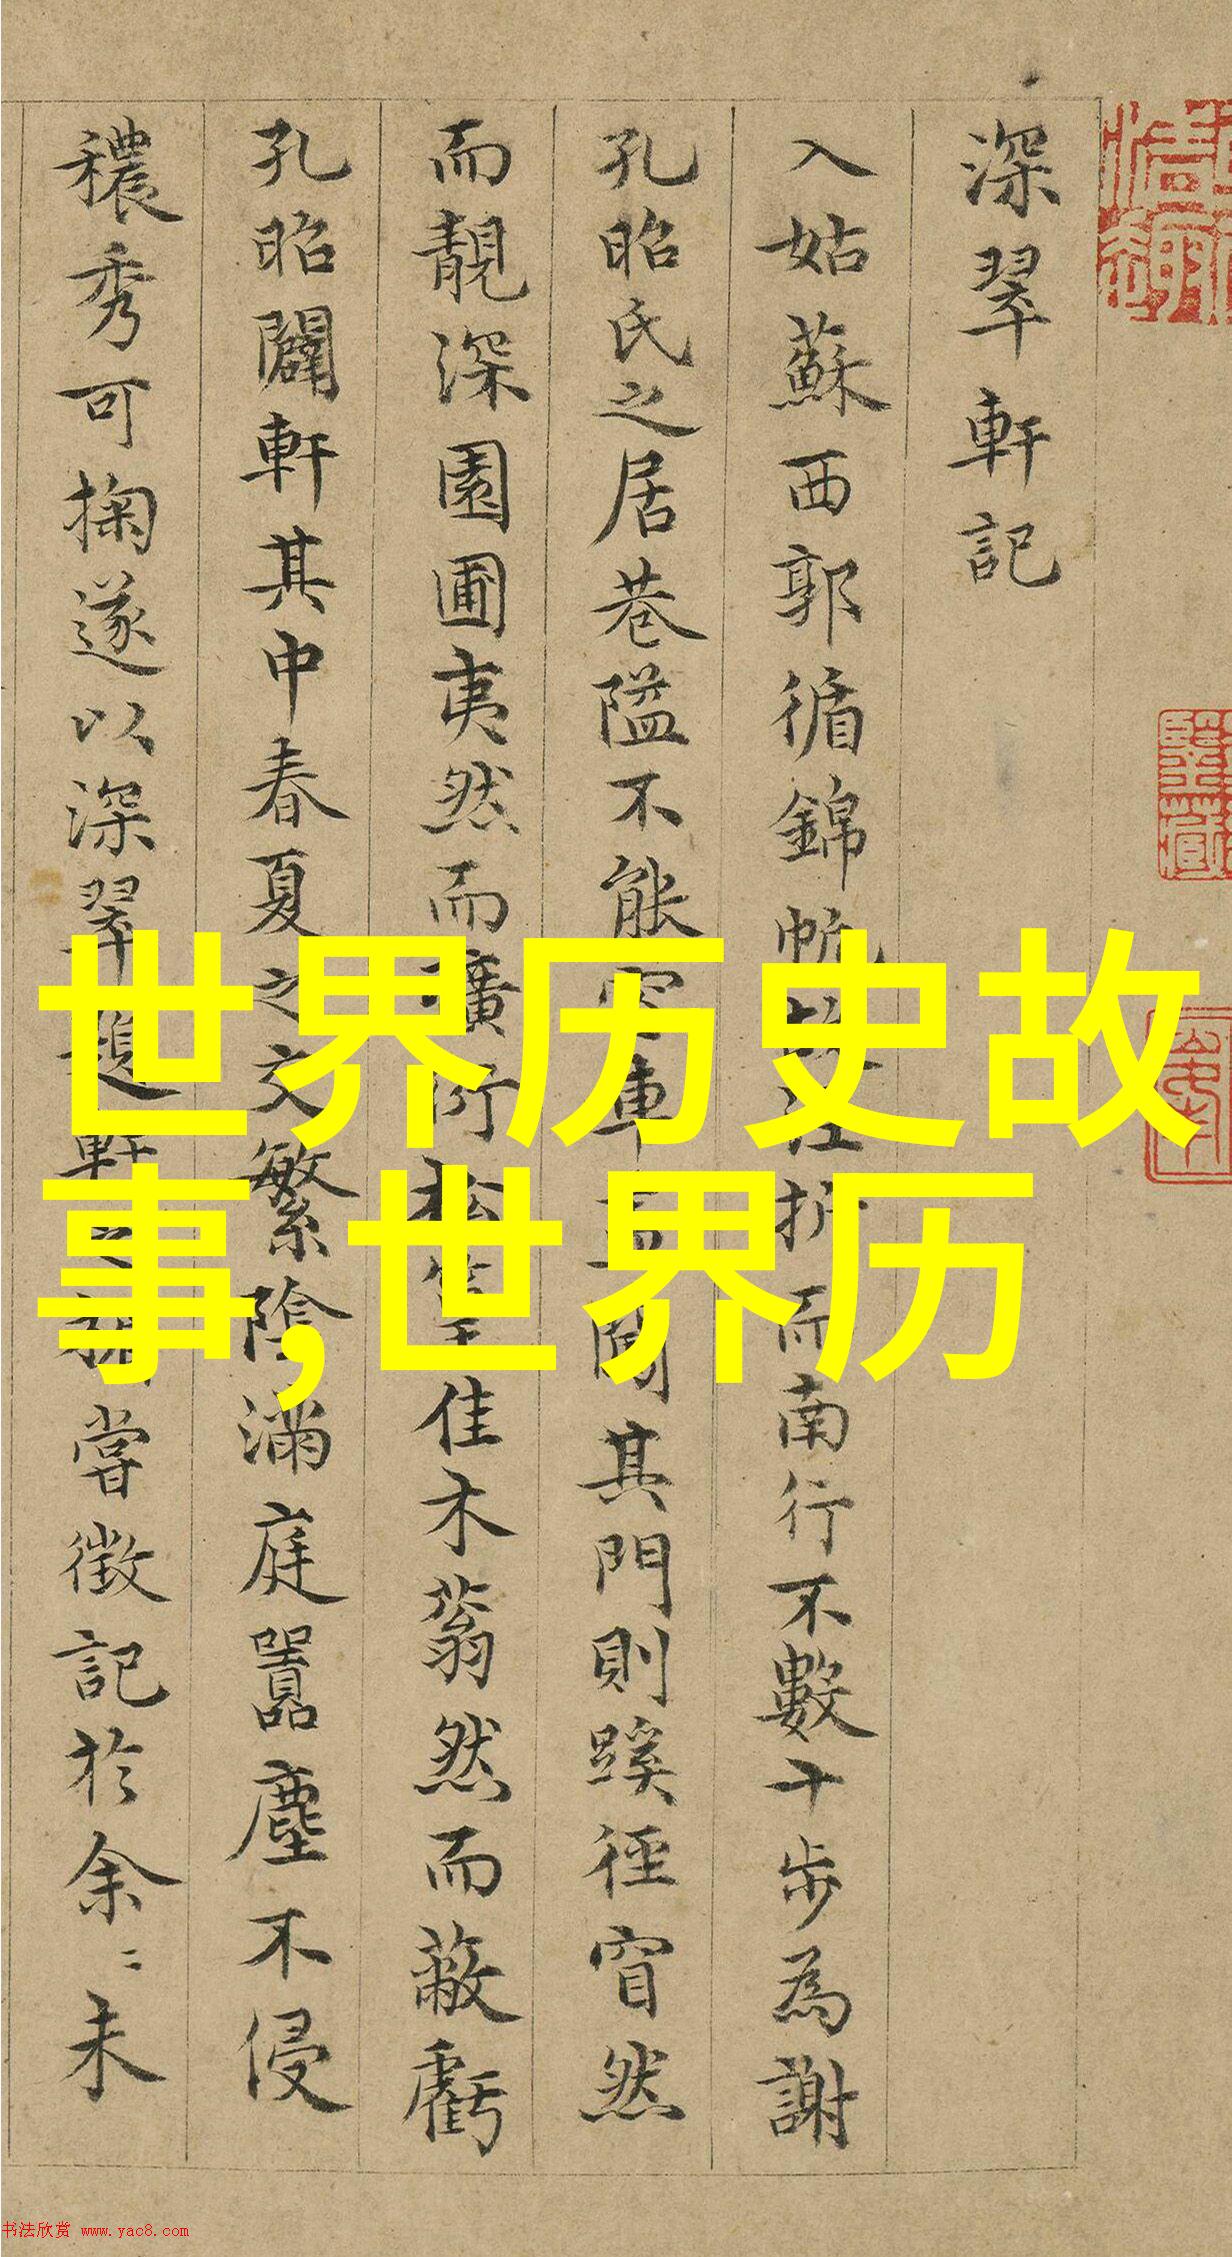 深翠軒記
入姑蘇西郭循錦帆故涇折而南行不數十步為謝
孔昭氏之居巷隘不能容車其門則蹊徑窅然
而靚深園圃夷然而廣衍松筠佳木蓊然而蔽虧
孔昭闢軒其中春夏之交繁陰滿庭囂塵不侵
穠秀可掬遂以深翠題軒之嘗徵記於余〻未
世界历史故
事,世界历
书法欣赏 www.yac8.com